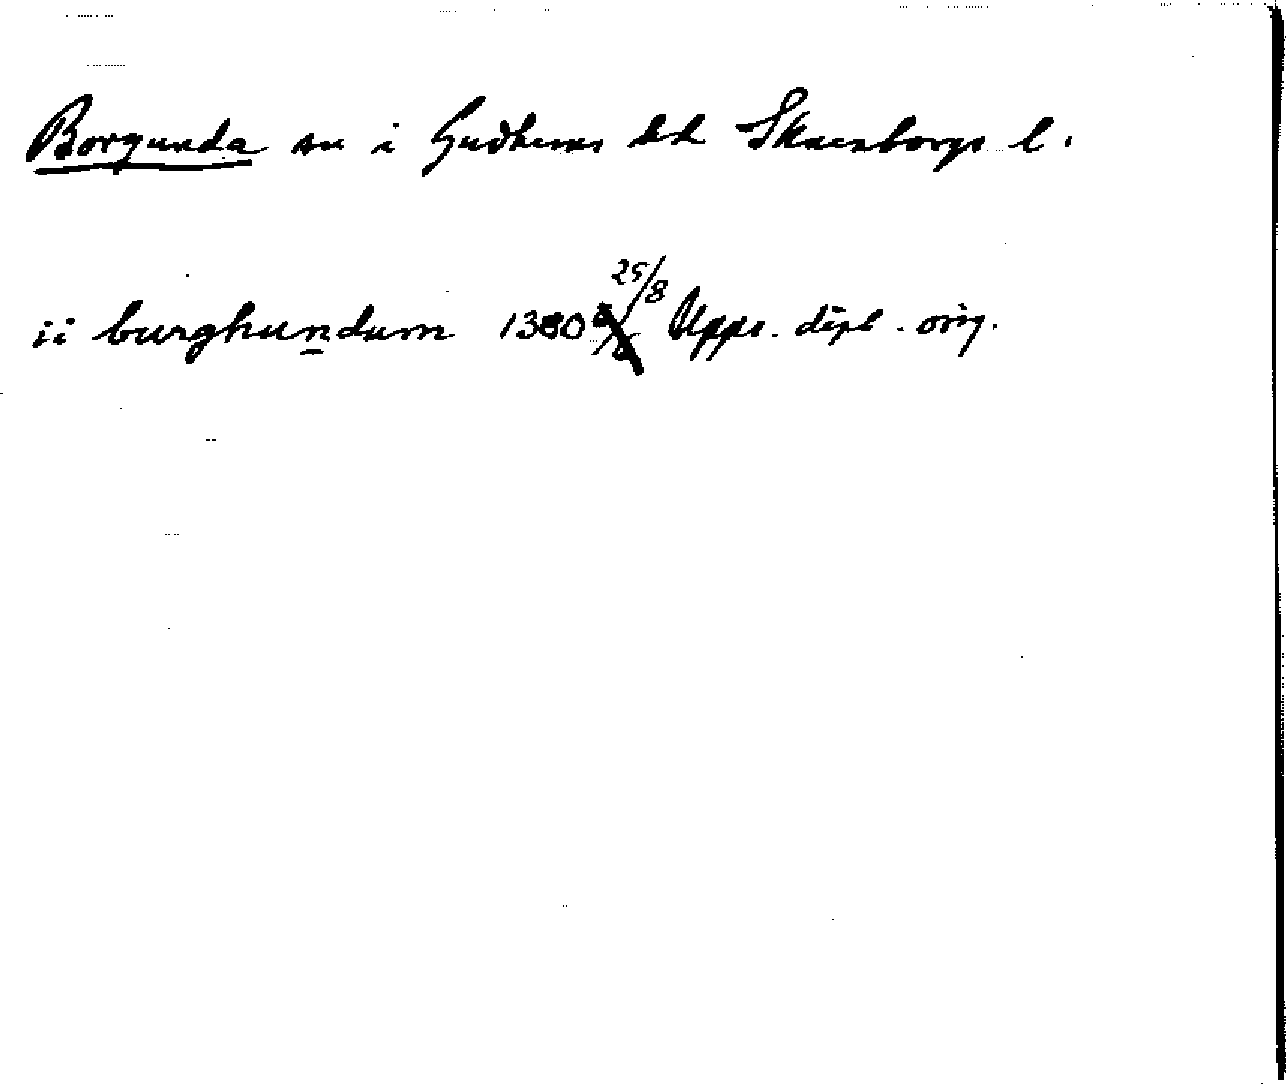 Borgunda sn i Gudhems hd Skaraborgs l.
ij burghundum 1380 25/8 Upps. dipl. orig.